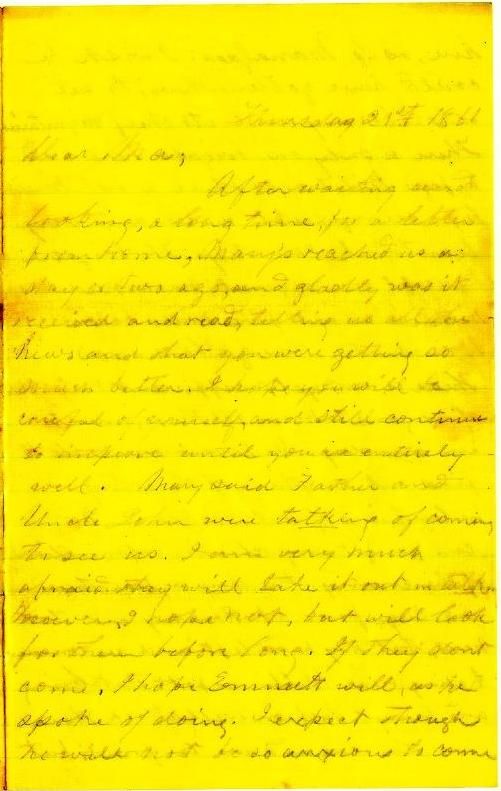 Thursday 21st 1861
Dear Ma,
After waiting and
looking, a long time, for a letter
from home, Mary's reached us a
day or two ago, and gladly was it
received and read, telling us all
news and that you were getting so
much better. I hope you will be
careful of yourself and still continue
to improve until you're entirely
well. Mary said Father and
Uncle John were talking of coming
to see us. I am very much
afraid they will take it out in talking
However, I hope not, but will look
for them before long. If they dont
come, I hope Emmett will, as he
spoke of doing. I expect though
he will not be so anxious to come